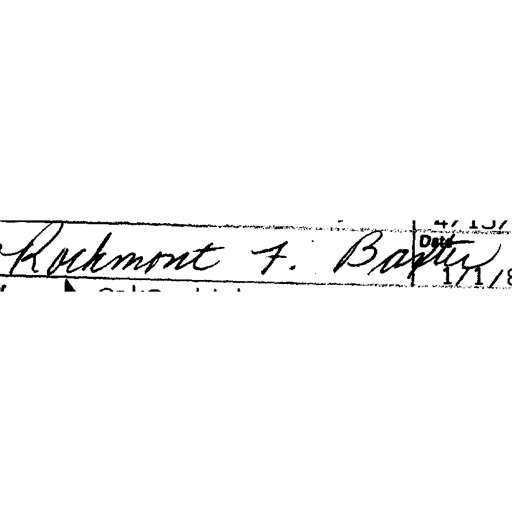 4/15/
Rockmont F. Baxter
Date
1/1/8